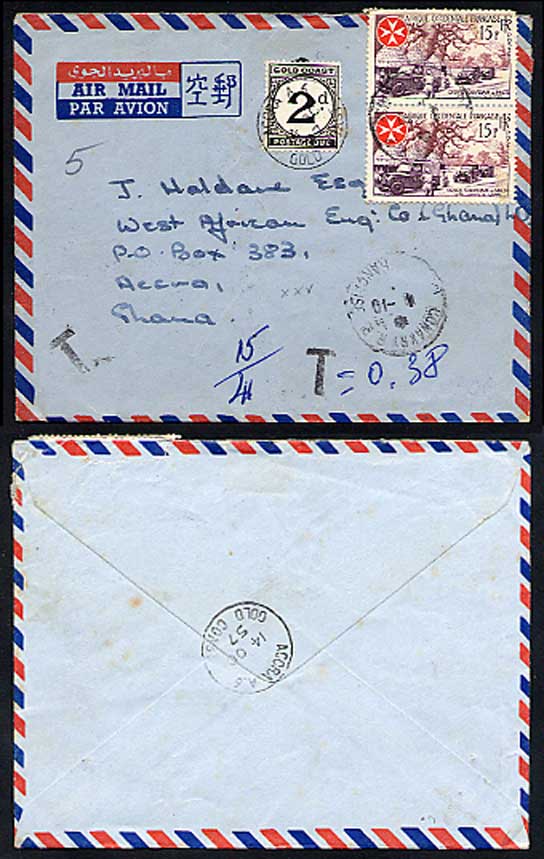 بالبريد الجوي
AIR MAIL
PAR AVION
空郵
GOLD COAST
2d
POSTAGE DUE
GOLD
AFRIQUE OCCIDENTALE FRANÇAISE
15F
AFRIQUE OCCIDENTALE FRANÇAISE
15F
5
J. Haldane Esq
West African Eng. Co (Ghana) Ltd
P.O. Box 383,
Accra,
Ghana.
xxx
CONAKRY
T
15/4
T = 0.38
ACCRA
14 OC
57
GOLD COAST